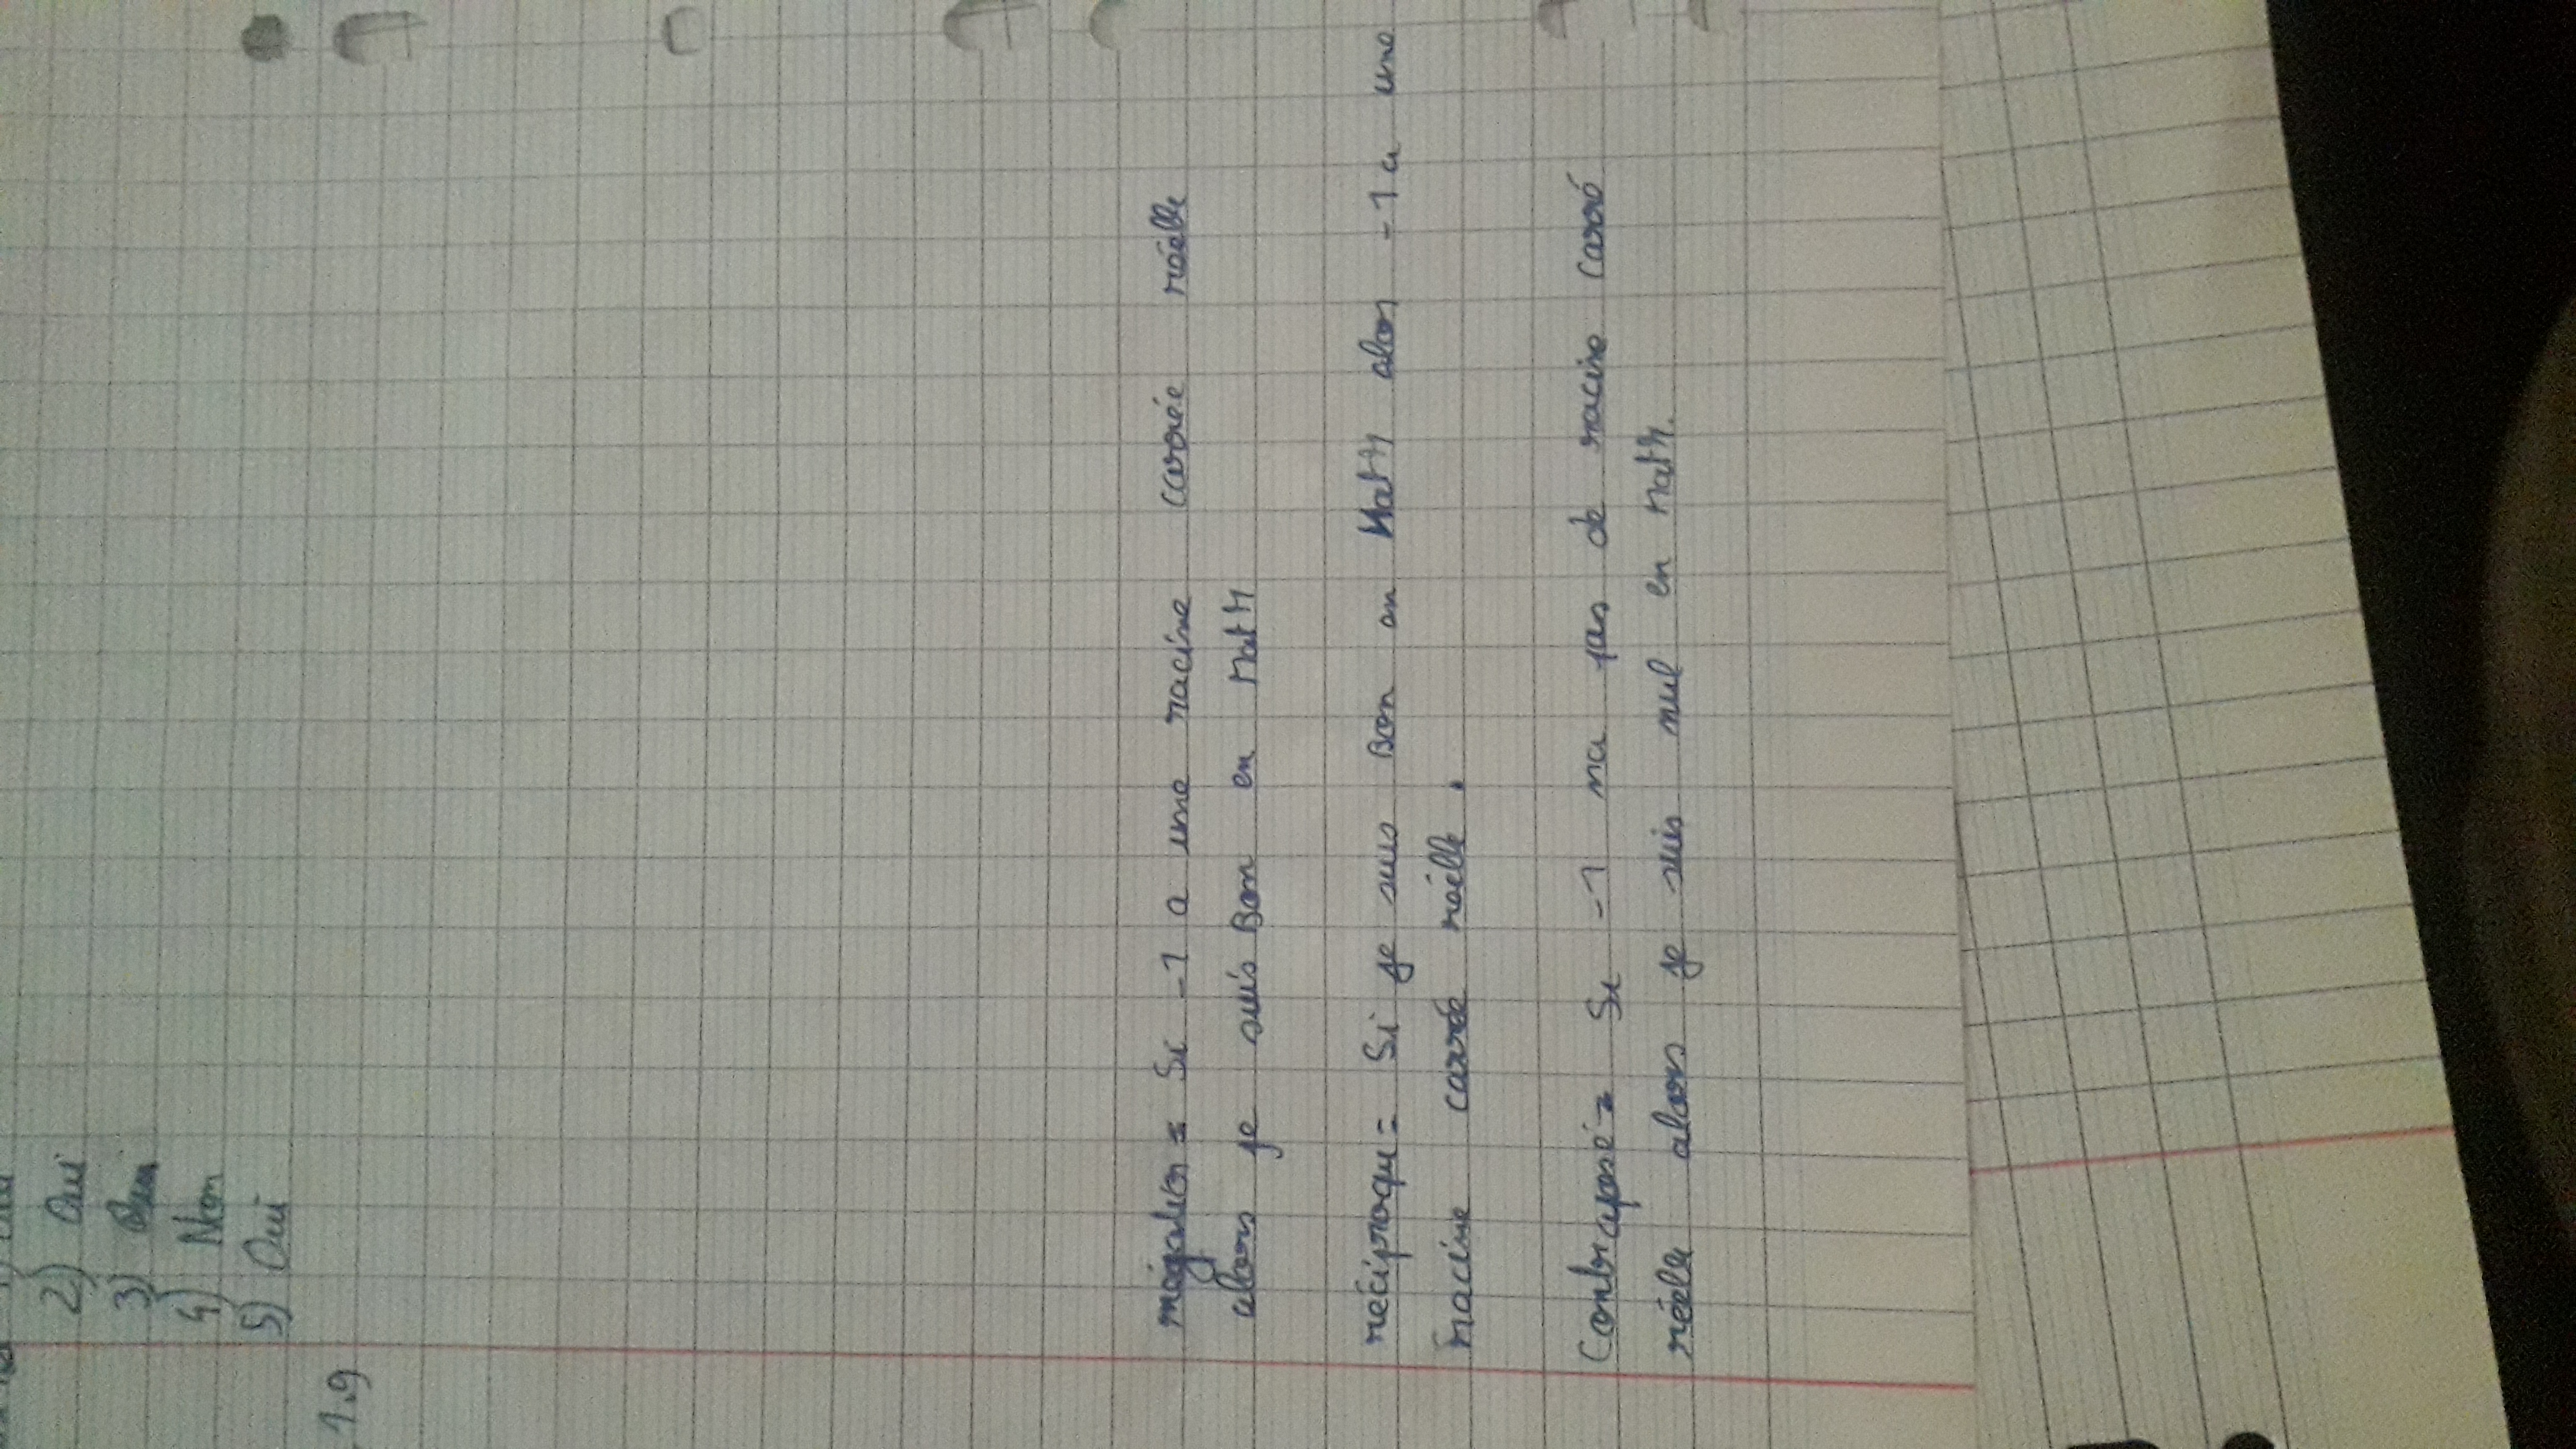 2) Oui
3) Oui
4) Non
5) Oui
1.9
négation = Si -1 a une racine carrée réelle
alors je suis Bon en Math
réciproque = Si je suis Bon en Math alors -1 a une
racine carrée réelle.
Contraposé = Si -1 na pas de racine carré
réelle alors je suis nul en Math.